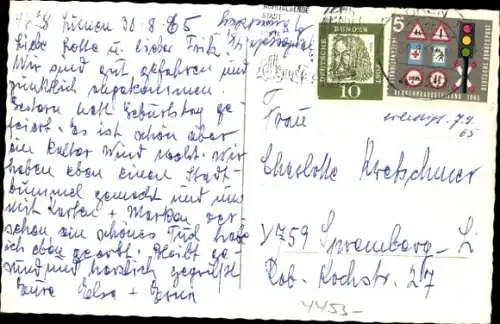 Lünen 30.8.65
Liebe Lotte u. lieber Fritz.
Wir sind gut gefahren und
pünktlich angekommen.
Gestern nett Geburtstag ge-
feiert. Es ist schön aber
ein kalter Wind
haben eben einen Stadt-
bummel gemacht und nun
mit Karten + Marken ver-
schon ein schönes Tuch habe
ich eben geerbt. Bleibt ge-
sund und herzlich gegrüßt
Eure Elsa + Erna
DEUTSCHE BUNDESPOST
10
5
DEUTSCHE BUNDESPOST
VERKEHRSAUSSTELLUNG 1965
Frau
erledigt 7.9.
65
Charlotte Kretschmer
Y 759 Spremberg
Rob. Kochstr. 27
4453-